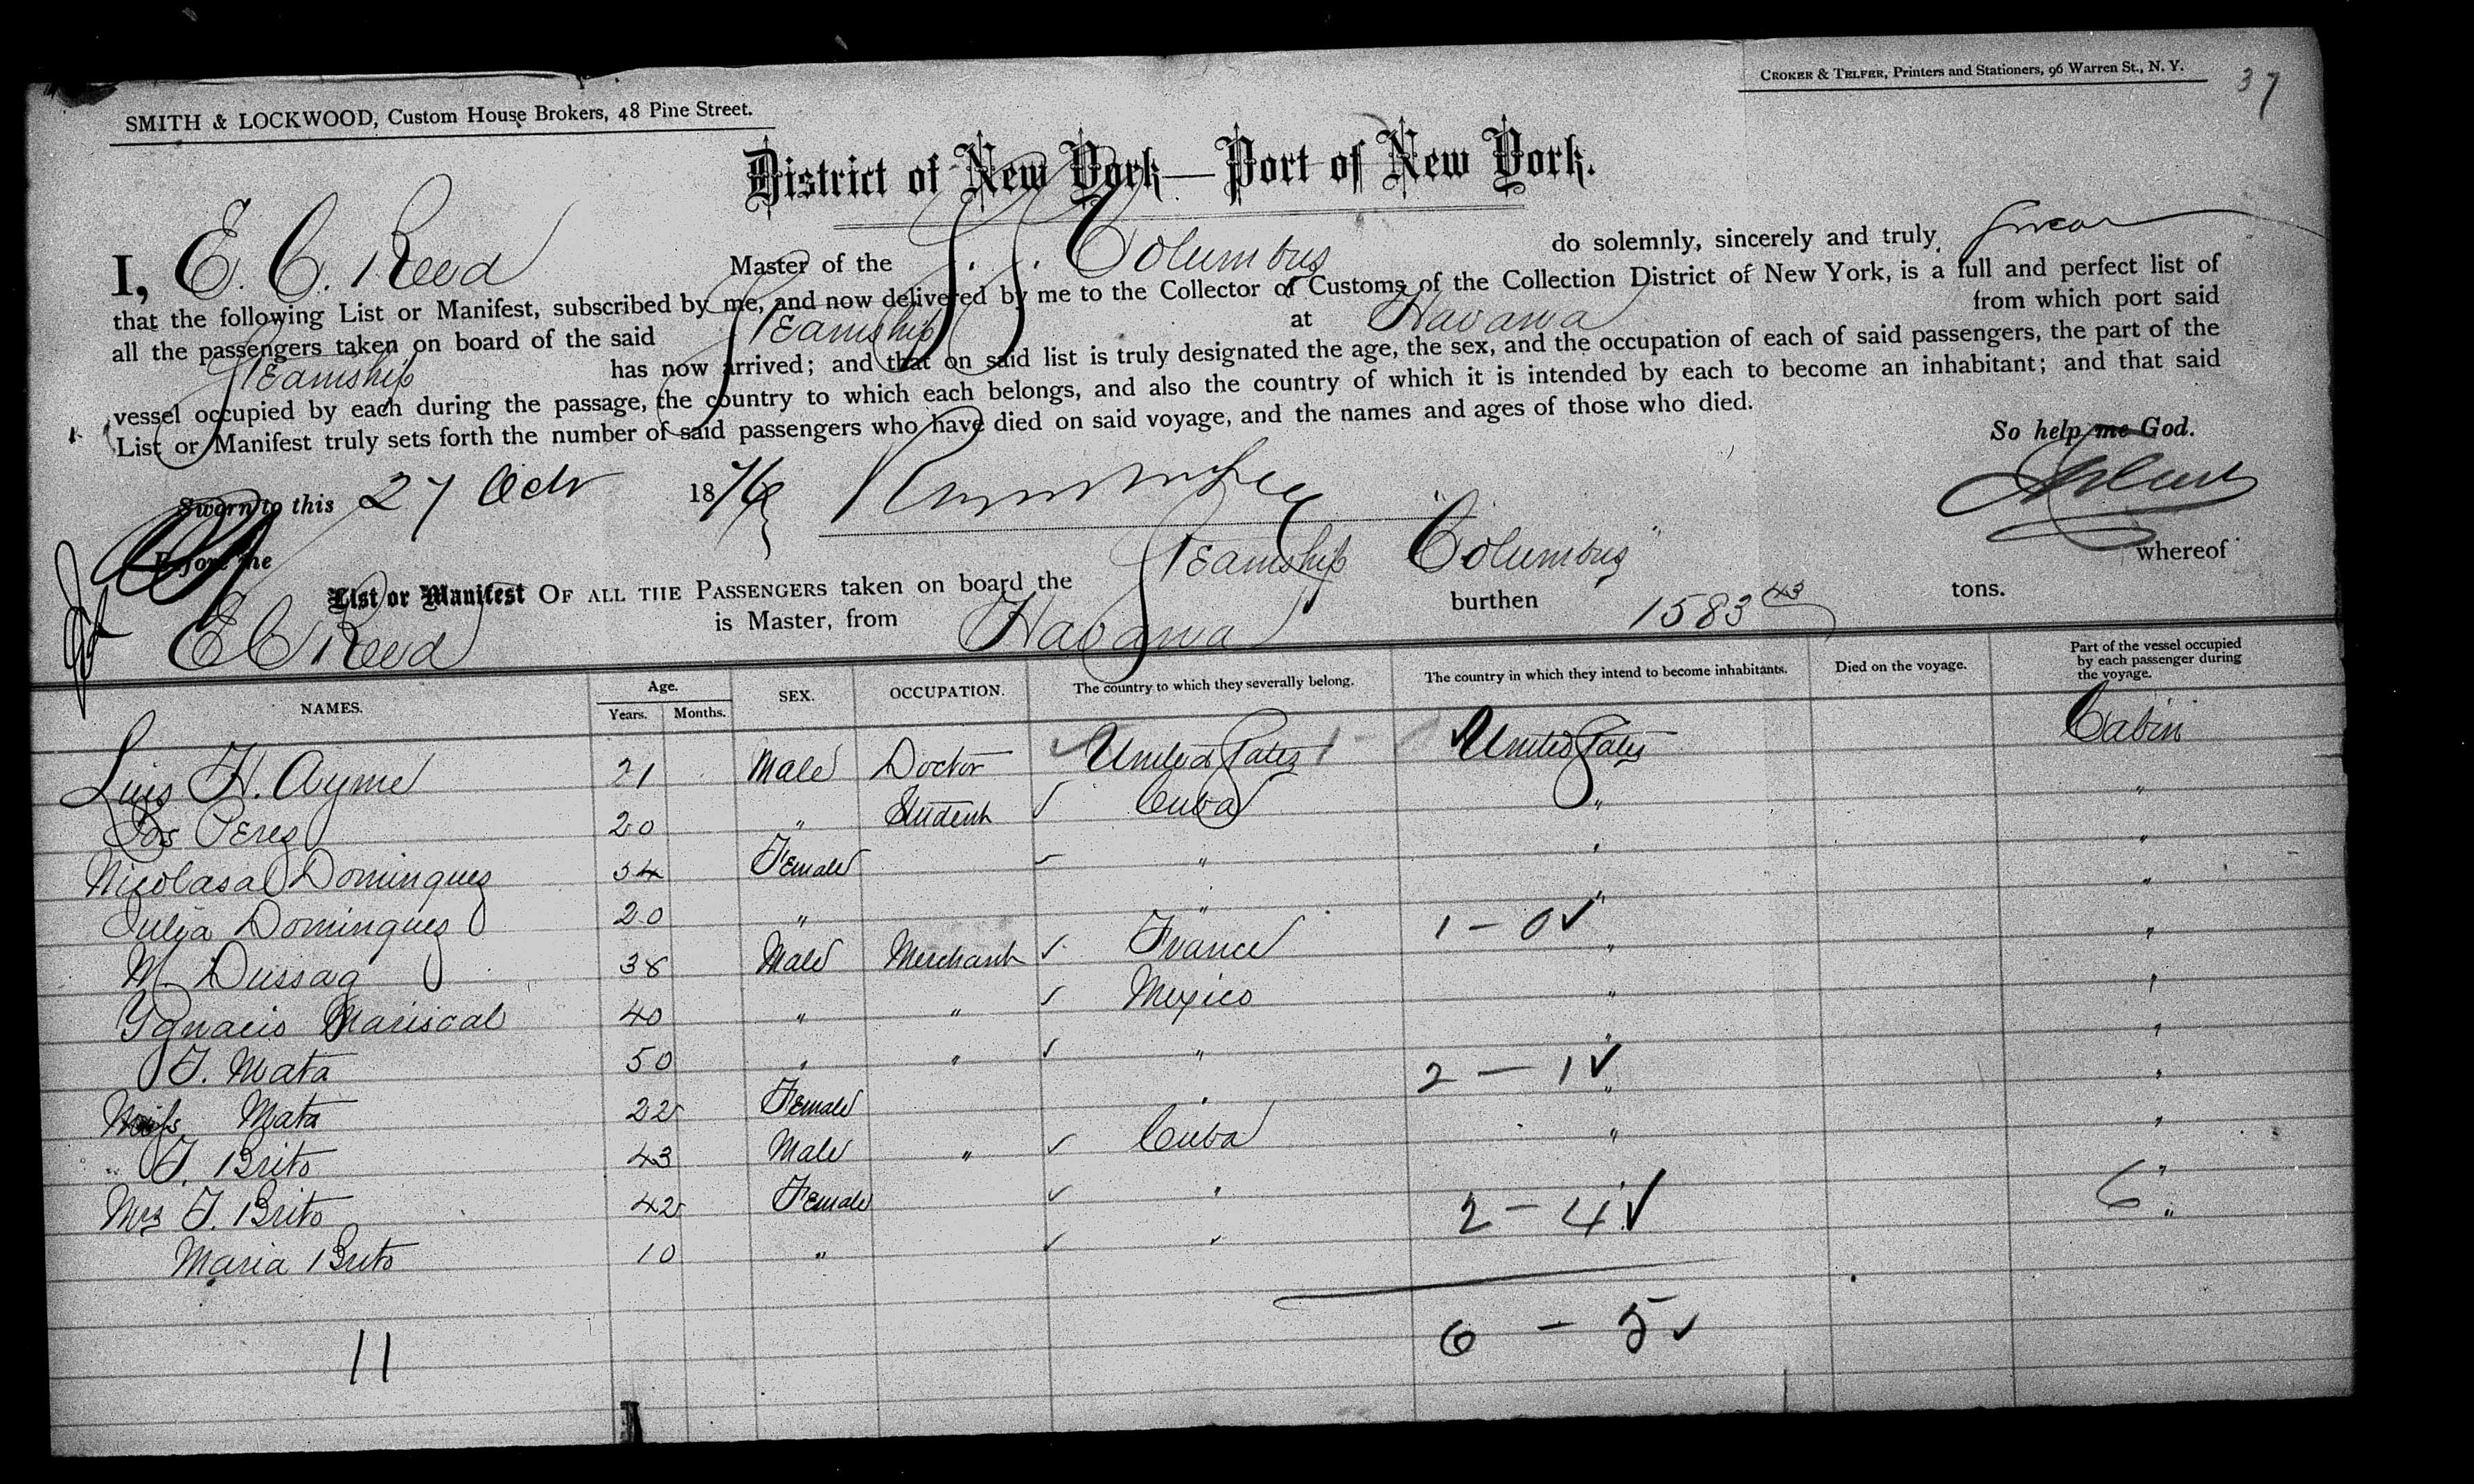 CROKER & TELFER, Printers and Stationers, 96 Warren St., N. Y.
37
SMITH & LOCKWOOD, Custom House Brokers, 48 Pine Street.
District of New York—Port of New York.
I, E. C. Reed Master of the S. S. Columbus do solemnly, sincerely and truly, swear
that the following List or Manifest, subscribed by me, and now delivered by me to the Collector of Customs of the Collection District of New York, is a full and perfect list of
all the passengers taken on board of the said Steamship at Havana from which port said
Steamship has now arrived; and that on said list is truly designated the age, the sex, and the occupation of each of said passengers, the part of the
vessel occupied by each during the passage, the country to which each belongs, and also the country of which it is intended by each to become an inhabitant; and that said
List or Manifest truly sets forth the number of said passengers who have died on said voyage, and the names and ages of those who died.
So help me God.
Sworn to this 27 Octr 1876
Before me
List or Manifest OF ALL THE PASSENGERS taken on board the Steamship "Columbus" whereof
E C Reed is Master, from Havana burthen 1583 43 tons.
NAMES. Age. Years. Months. SEX. OCCUPATION. The country to which they severally belong. The country in which they intend to become inhabitants. Died on the voyage. Part of the vessel occupied by each passenger during the voyage.
Luis H. Ayme 21 Male Doctor United States United States Cabin
Jos Perez 20 " Student Cuba " "
Nicolasa Dominguez 54 Female " " "
Julia Dominguez 20 " " " "
1 - 0
M. Dussaq 38 Male Merchant France " "
Ygnacio Mariscal 40 " " Mexico " "
J. Mata 50 " " " " "
2 - 1
Miss Mata 22 Female " " "
J. Brito 43 Male " Cuba " "
Mrs J. Brito 42 Female " " "
2 - 4
6
Maria Brito 10 " " "
11
6 - 5